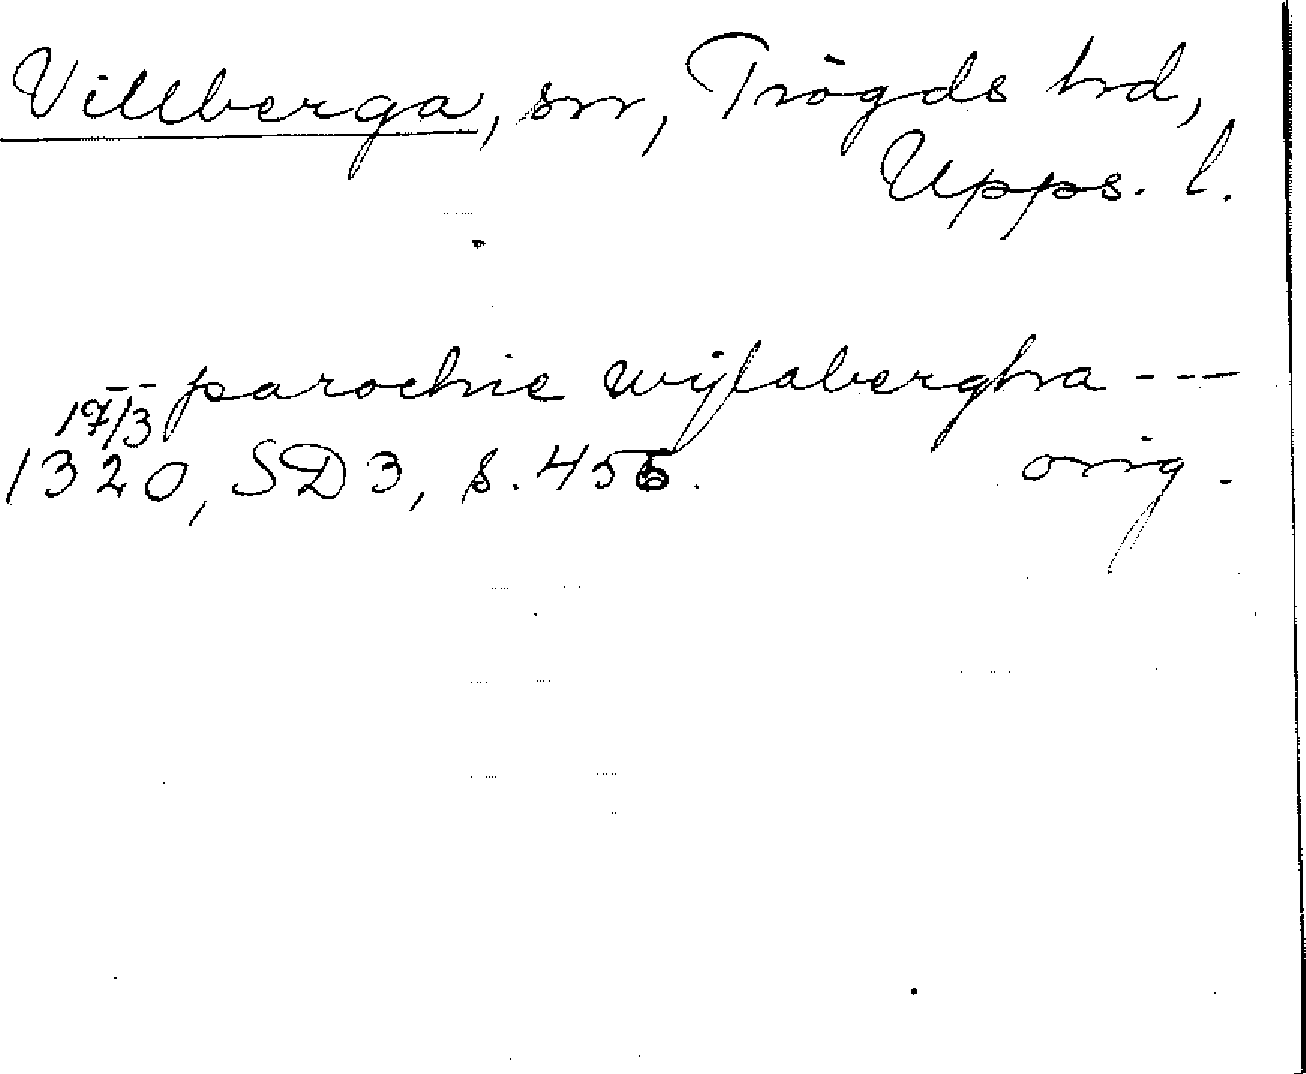 Villberga, sn, Trögds hd,
Upps. l.
-- parochie wijlabergha ---
17/3
1320, SD3, s. 456. orig.